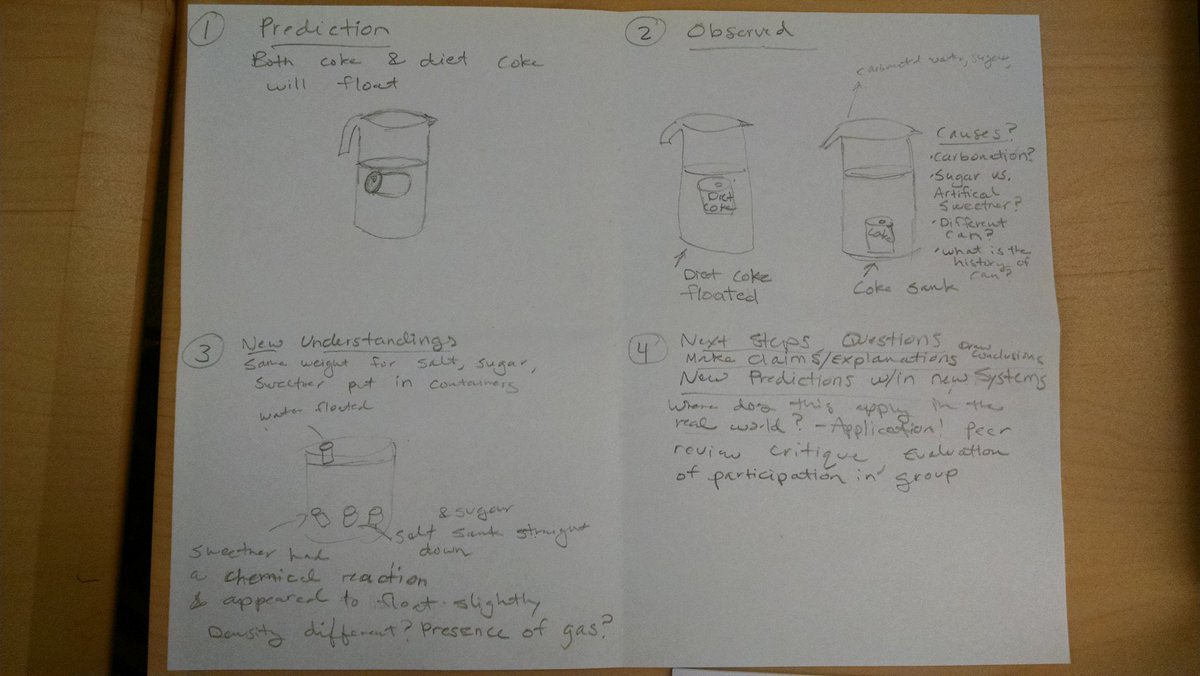 1 Prediction
Both coke & diet coke
will float
2 Observed
carbonated water, sugar,
Diet
Coke
Diet coke
floated
Coke
Coke sank
Causes?
• Carbonation?
• Sugar vs.
Artifical
Sweetner?
• Different
can?
• what is the
history of
can?
3 New Understandings
Same weight for salt, sugar,
Sweetner put in containers
water floated
& sugar
salt sank straight
down
Sweetner had
a chemical reaction
& appeared to float slightly
Density different? Presence of gas?
4 Next Steps, Questions
Make Claims/Explanations Draw Conclusions
New Predictions w/in new Systems
Where does this apply in the
real world? - Application! Peer
review critique Evaluation
of participation in group